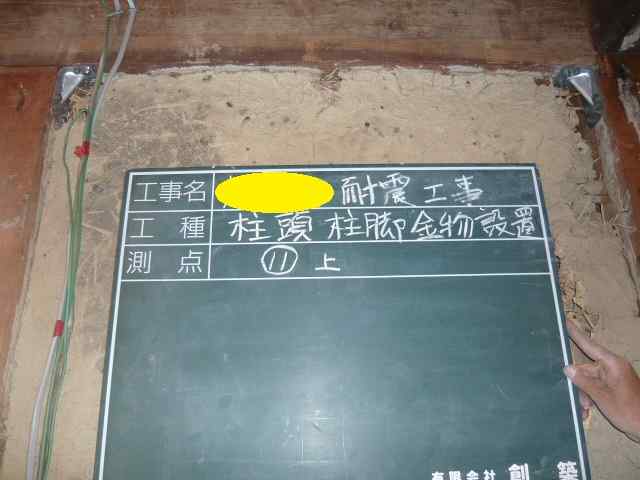 工事名 耐震工事
工種 柱頭柱脚金物設置
測点 ⑪上
有限会社 創築